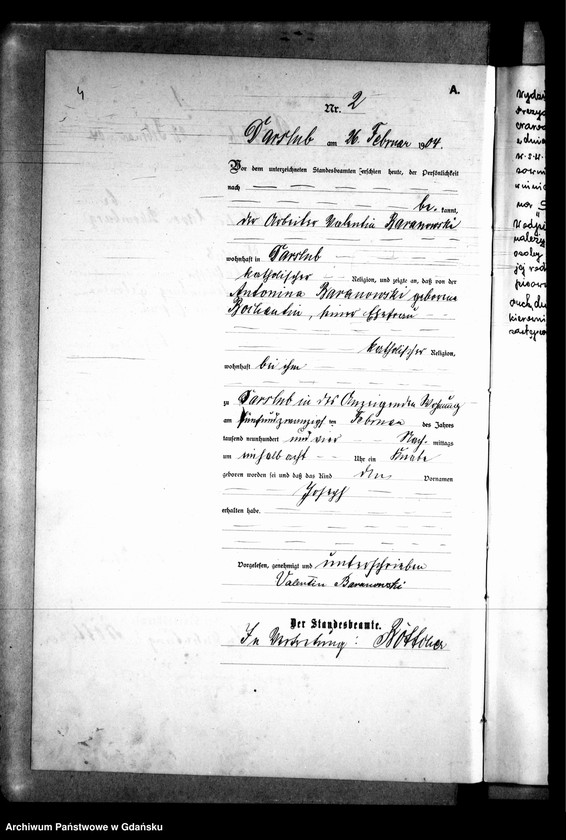 4
A.
Nr. 2
Darslub am 26. Februar 1904.
Vor dem unterzeichneten Standesbeamten erschien heute, der Persönlichkeit
nach
be kannt,
der Arbeiter Valentin Baranowski
wohnhaft in Darslub
katholischer Religion, und zeigte an, daß von der
Antonina Baranowski geborene
seiner Ehefrau
katholischer Religion,
wohnhaft bei ihm
zu Darslub in des Anzeigenden Wohnung
am fünfundzwanzigsten Februar des Jahres
tausend neunhundert und vier Nach mittags
um einhalb acht Uhr ein Knabe
geboren worden sei und daß das Kind den Vornamen
Joseph
erhalten habe.
Vorgelesen, genehmigt und unterschrieben
Valentin Baranowski
Der Standesbeamte.
In Vertretung: Böttcher
wydan
w dniu
"
osoby
Archiwum Państwowe w Gdańsku